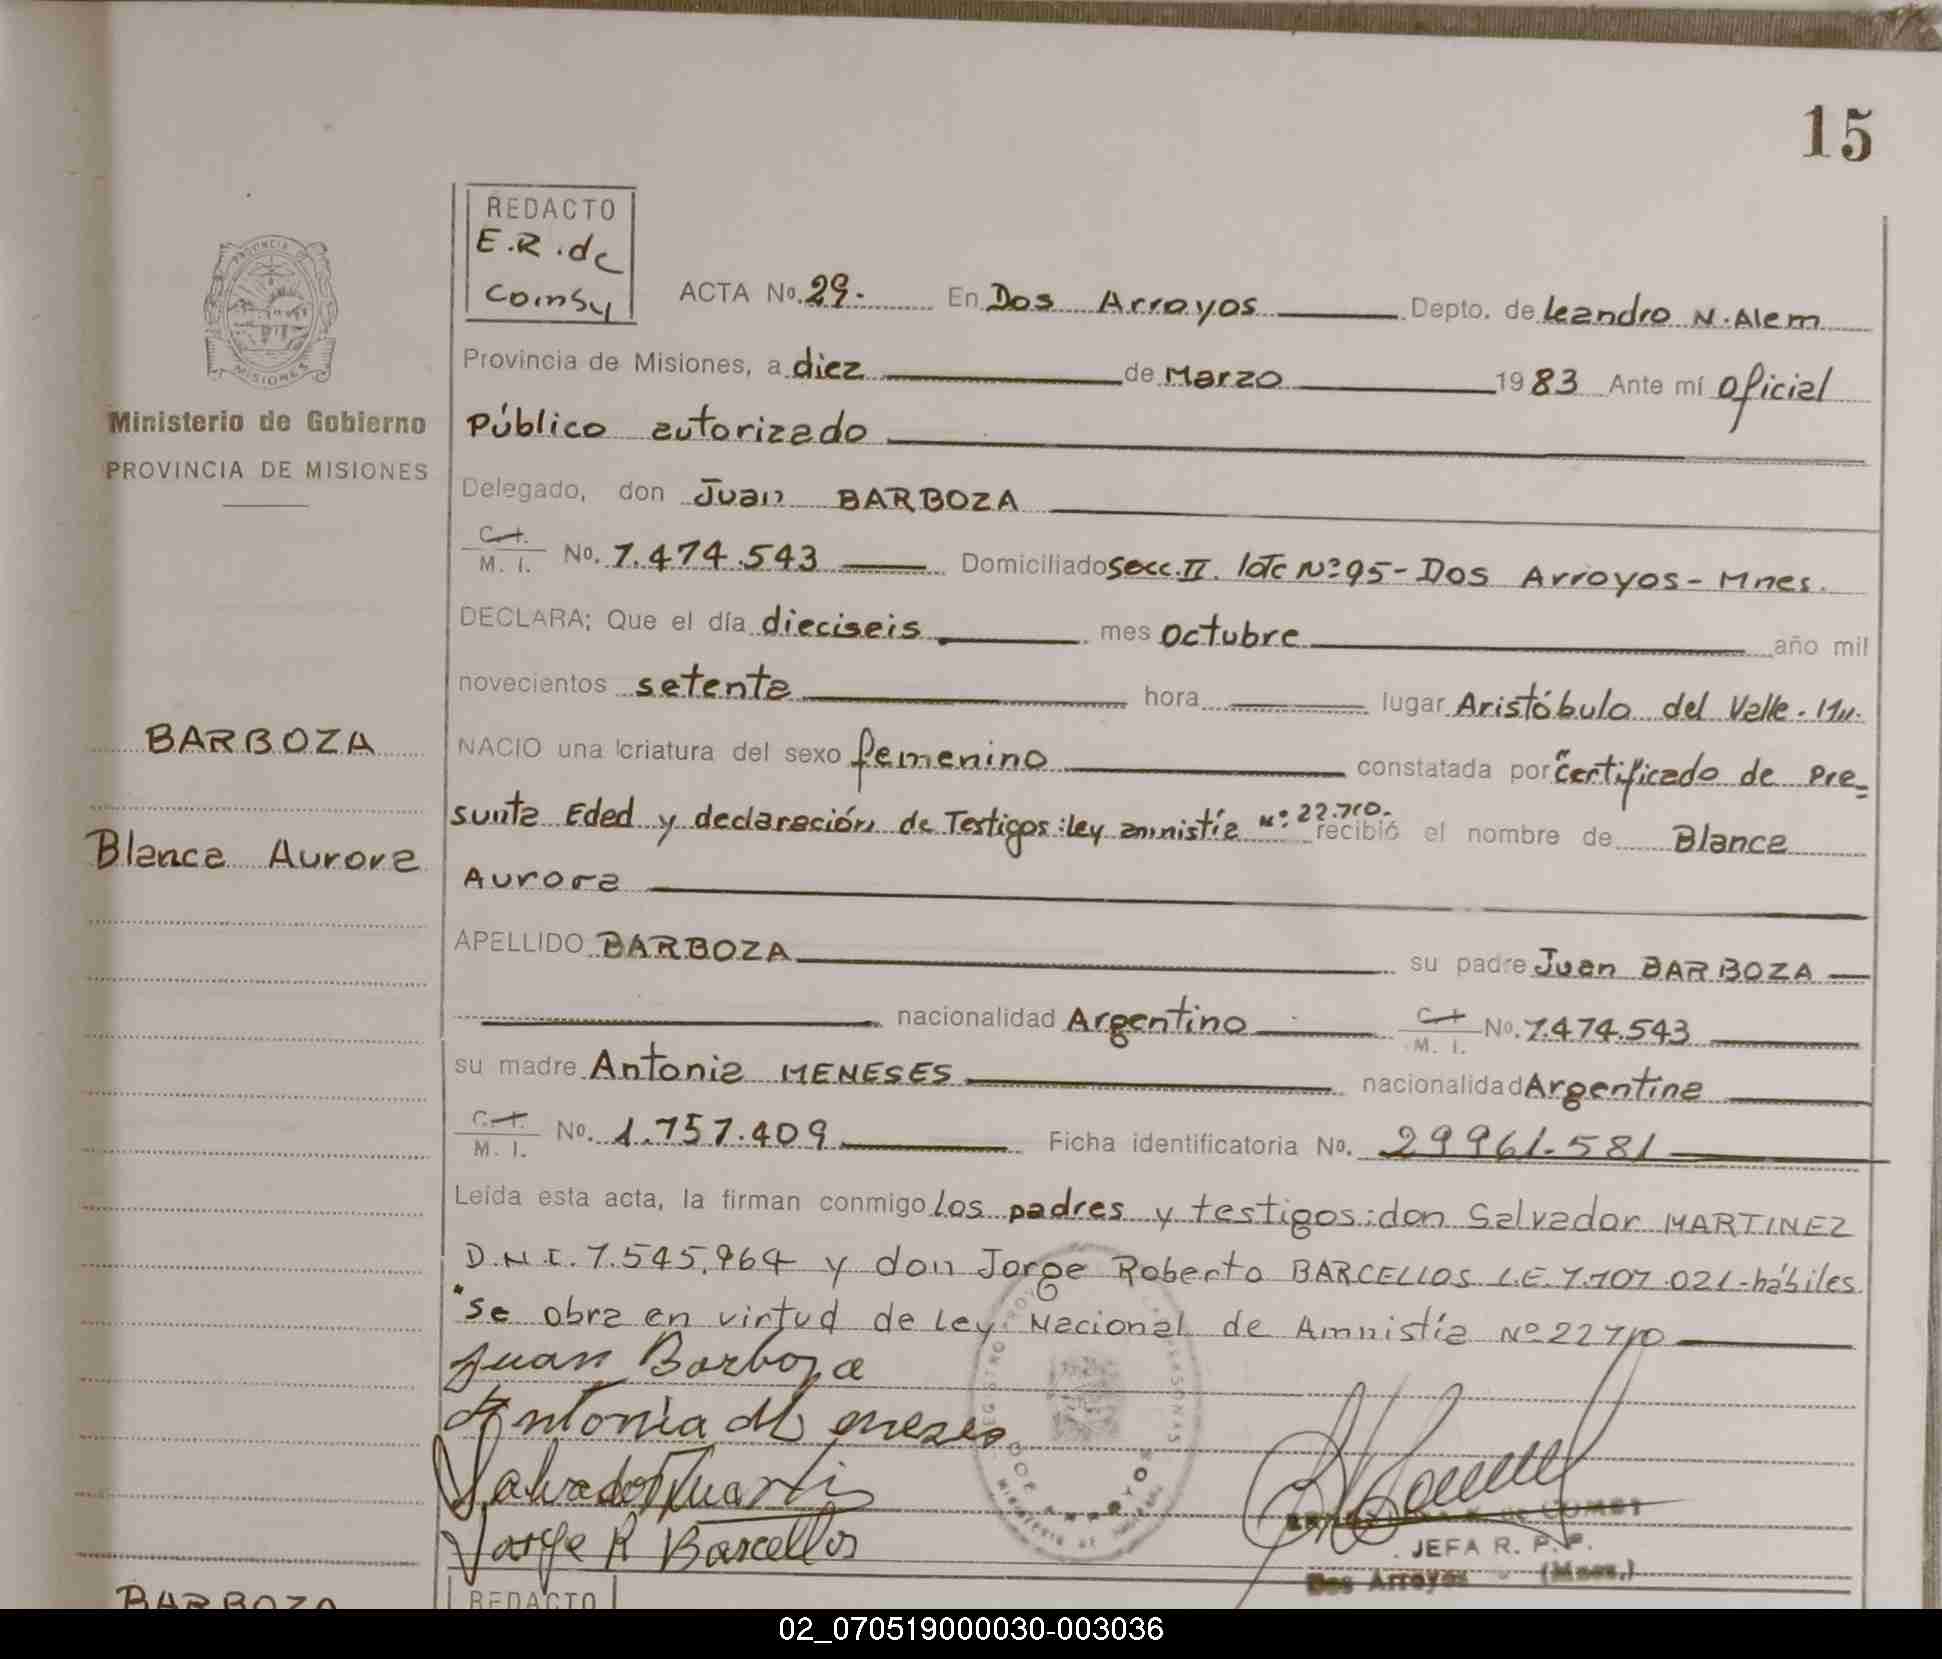 15
REDACTO
E.R. de
Coinsy
ACTA No. 29.- En Dos Arroyos Depto. de Leandro N. Alem
Provincia de Misiones, a diez de Marzo 1983 Ante mí Oficial
Público autorizado
Delegado, don Juan BARBOZA
C.I. M. I. No. 7.474.543 Domiciliado Secc. II. lote Nº 95 - Dos Arroyos - Mnes.
DECLARA; Que el día dieciseis mes octubre año mil
novecientos setenta hora lugar Aristóbulo del Valle - Mn.
NACIO una criatura del sexo femenino constatada por Certificado de Pre=
sunta Edad y declaración de Testigos: ley amnistía Nº: 22.710. recibió el nombre de Blanca
Aurora
APELLIDO BARBOZA su padre Juan BARBOZA
nacionalidad Argentino C.I. M. I. No. 7.474.543
su madre Antonia MENESES nacionalidad Argentina
C.I. M. I. No. 1.757.409 Ficha identificatoria No. 29961.581
Leída esta acta, la firman conmigo los padres y testigos: don Salvador MARTINEZ
D.N.I. 7.545.964 y don Jorge Roberto BARCELLOS L.E. 7.707.021 - hábiles
"se obra en virtud de Ley Nacional de Amnistía Nº 22710
Juan Barboza
Antonia Meneses
Salvador Marti
Jorge R Barcellos
PROVINCIA DE
MISIONES
Ministerio de Gobierno
PROVINCIA DE MISIONES
BARBOZA
Blanca Aurora
BARBOZA
REGISTRO PERSONAS
DOS ARROYOS
MINISTERIO DE
JEFA R. P. P.
Dos Arroyos - (Mnes.)
REDACTO
02_070519000030-003036